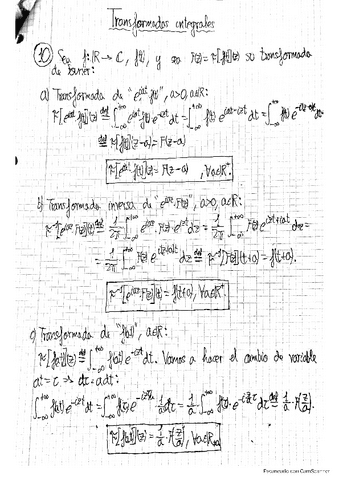 Transformadas integrales
10 Sea f:ℝ→ℂ, f(t), y sea F(z)=F[f(t)] su transformada
de Fourier:
a) Transformada de "e^{iat} f(t)", a>0, a∈ℝ:
F[e^{iat} f(t)](z) def= ∫_{-∞}^{+∞} e^{iat} f(t) e^{-izt} dt = ∫_{-∞}^{+∞} f(t) e^{iat-izt} dt = ∫_{-∞}^{+∞} f(t) e^{-i(z-a)t} dt
def= F[f(t)](z-a) = F(z-a)
F[e^{iat} f(t)](z) = F(z-a) , ∀a∈ℝ⁺
b) Transformada inversa de "e^{iaz} F(z)", a>0, a∈ℝ:
F⁻¹[e^{iaz} F(z)](t) def= 1/2π ∫_{-∞}^{+∞} e^{iaz} F(z) e^{izt} dz = 1/2π ∫_{-∞}^{+∞} F(z) e^{izt+iaz} dz =
= 1/2π ∫_{-∞}^{+∞} F(z) e^{iz(t+a)} dz def= F⁻¹[F(z)](t+a) = f(t+a).
F⁻¹[e^{iaz} F(z)] = f(t+a), ∀a∈ℝ⁺
c) Transformada de "f(at)", a∈ℝ:
F[f(at)](z) def= ∫_{-∞}^{+∞} f(at) e^{-izt} dt. Vamos a hacer el cambio de variable
at = τ ⇒ dτ = a dt:
∫_{-∞}^{+∞} f(at) e^{-izt} dt = ∫_{-∞}^{+∞} f(τ) e^{-izτ/a} 1/a dτ = 1/a ∫_{-∞}^{+∞} f(τ) e^{-i(z/a)τ} dτ def= 1/a F(z/a).
F[f(at)](z) = 1/a F(z/a), ∀a∈ℝ
Escaneado con CamScanner